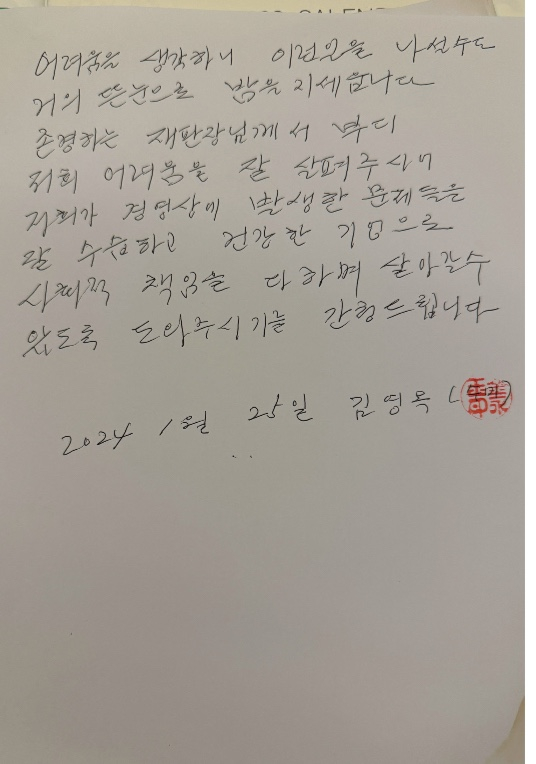 어려움을 생각하니 이런모을 나선수도
거의 뜬눈으로 밤을 지세웁니다
존경하는 재판장님께서 부디
저희 어려움을 잘 살펴주시어
저희가 경영상에 발생한 문제들을
잘 수습하고 건강한 기업으로
사회적 책임을 다하며 살아갈수
있도록 도와주시기를 간청드립니다
2024 1월 25일 김영옥